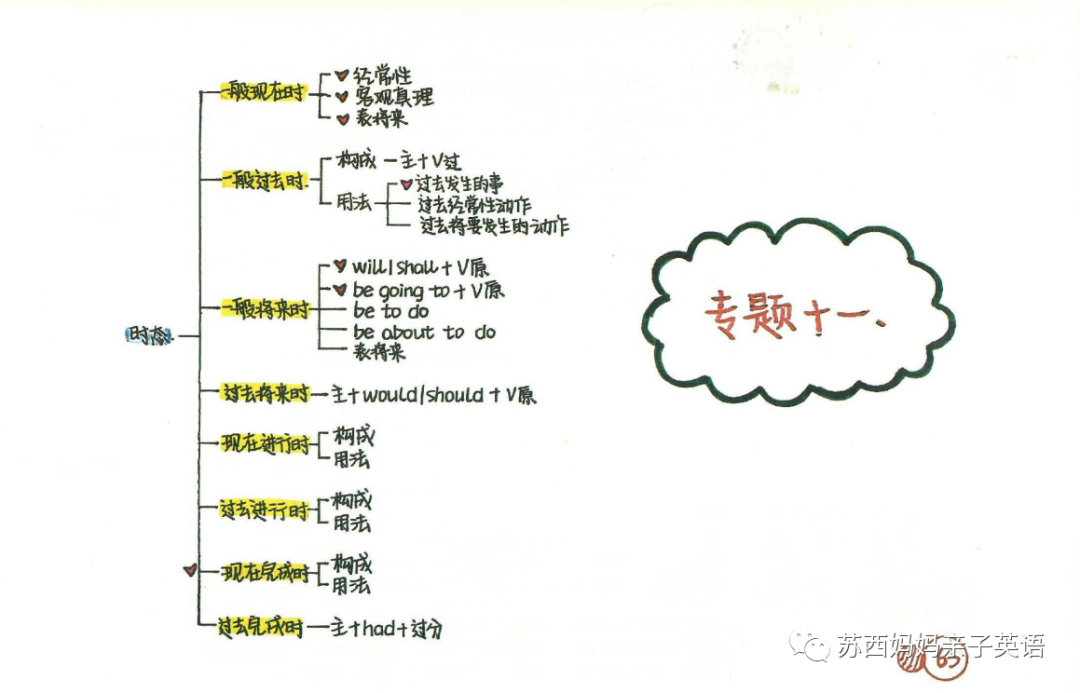 一般现在时
经常性
客观真理
表将来
一般过去时
构成 — 主+V过
用法
过去发生的事
过去经常性动作
过去将要发生的动作
一般将来时
will/shall + V原
be going to + V原
be to do
be about to do
表将来
时态
过去将来时 — 主+would/should + V原
现在进行时
构成
用法
过去进行时
构成
用法
现在完成时
构成
用法
过去完成时 — 主+had+过分
专题十一、
苏西妈妈亲子英语
63